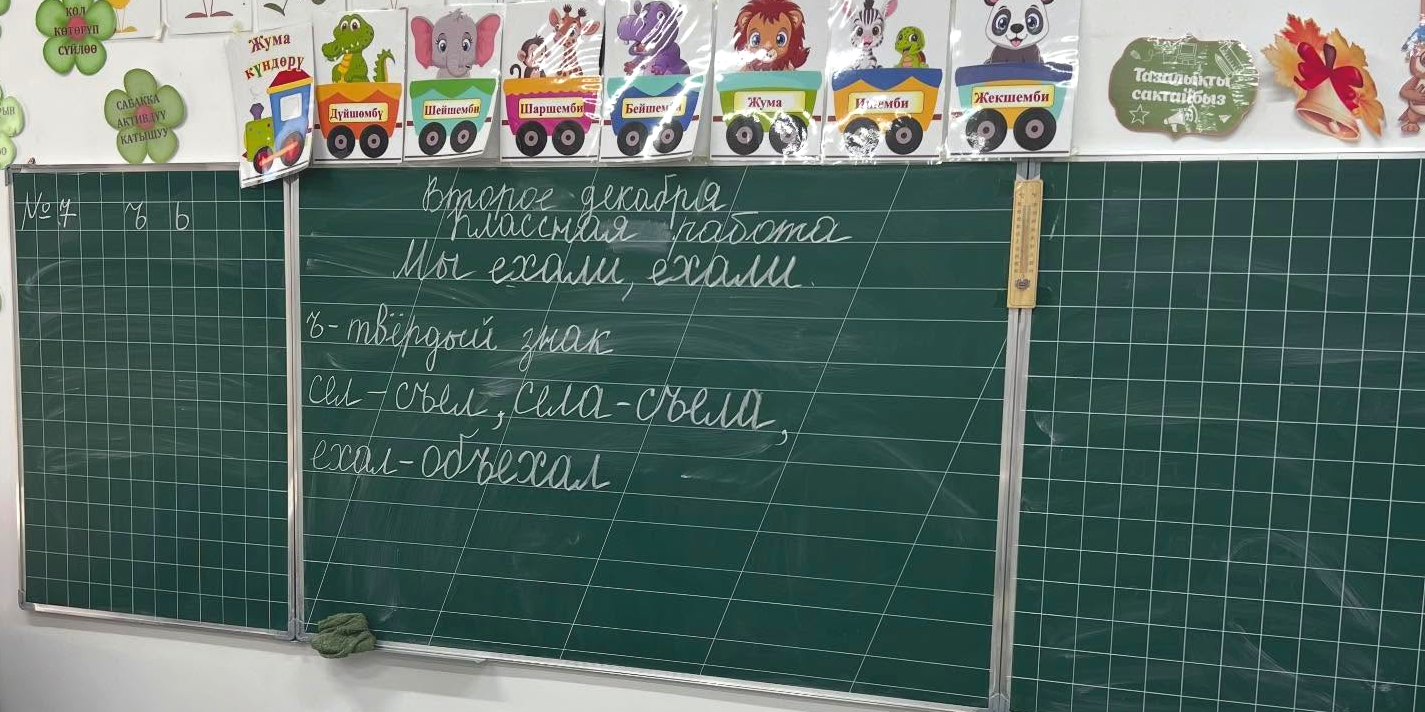 КОЛ
КӨТӨРҮП
СҮЙЛӨӨ
САБАККА
АКТИВДҮҮ
КАТЫШУУ
Жума
күндөрү
Дүйшөмбү
Шейшемби
Шаршемби
Бейшемби
Жума
Ишемби
Жекшемби
Тазалыкты
сактайбыз
№7 ъ ь
Второе декабря
Классная работа
Мы ехали, ехали.
ъ-твёрдый знак
сел-съел, села-съела,
ехал-объехал